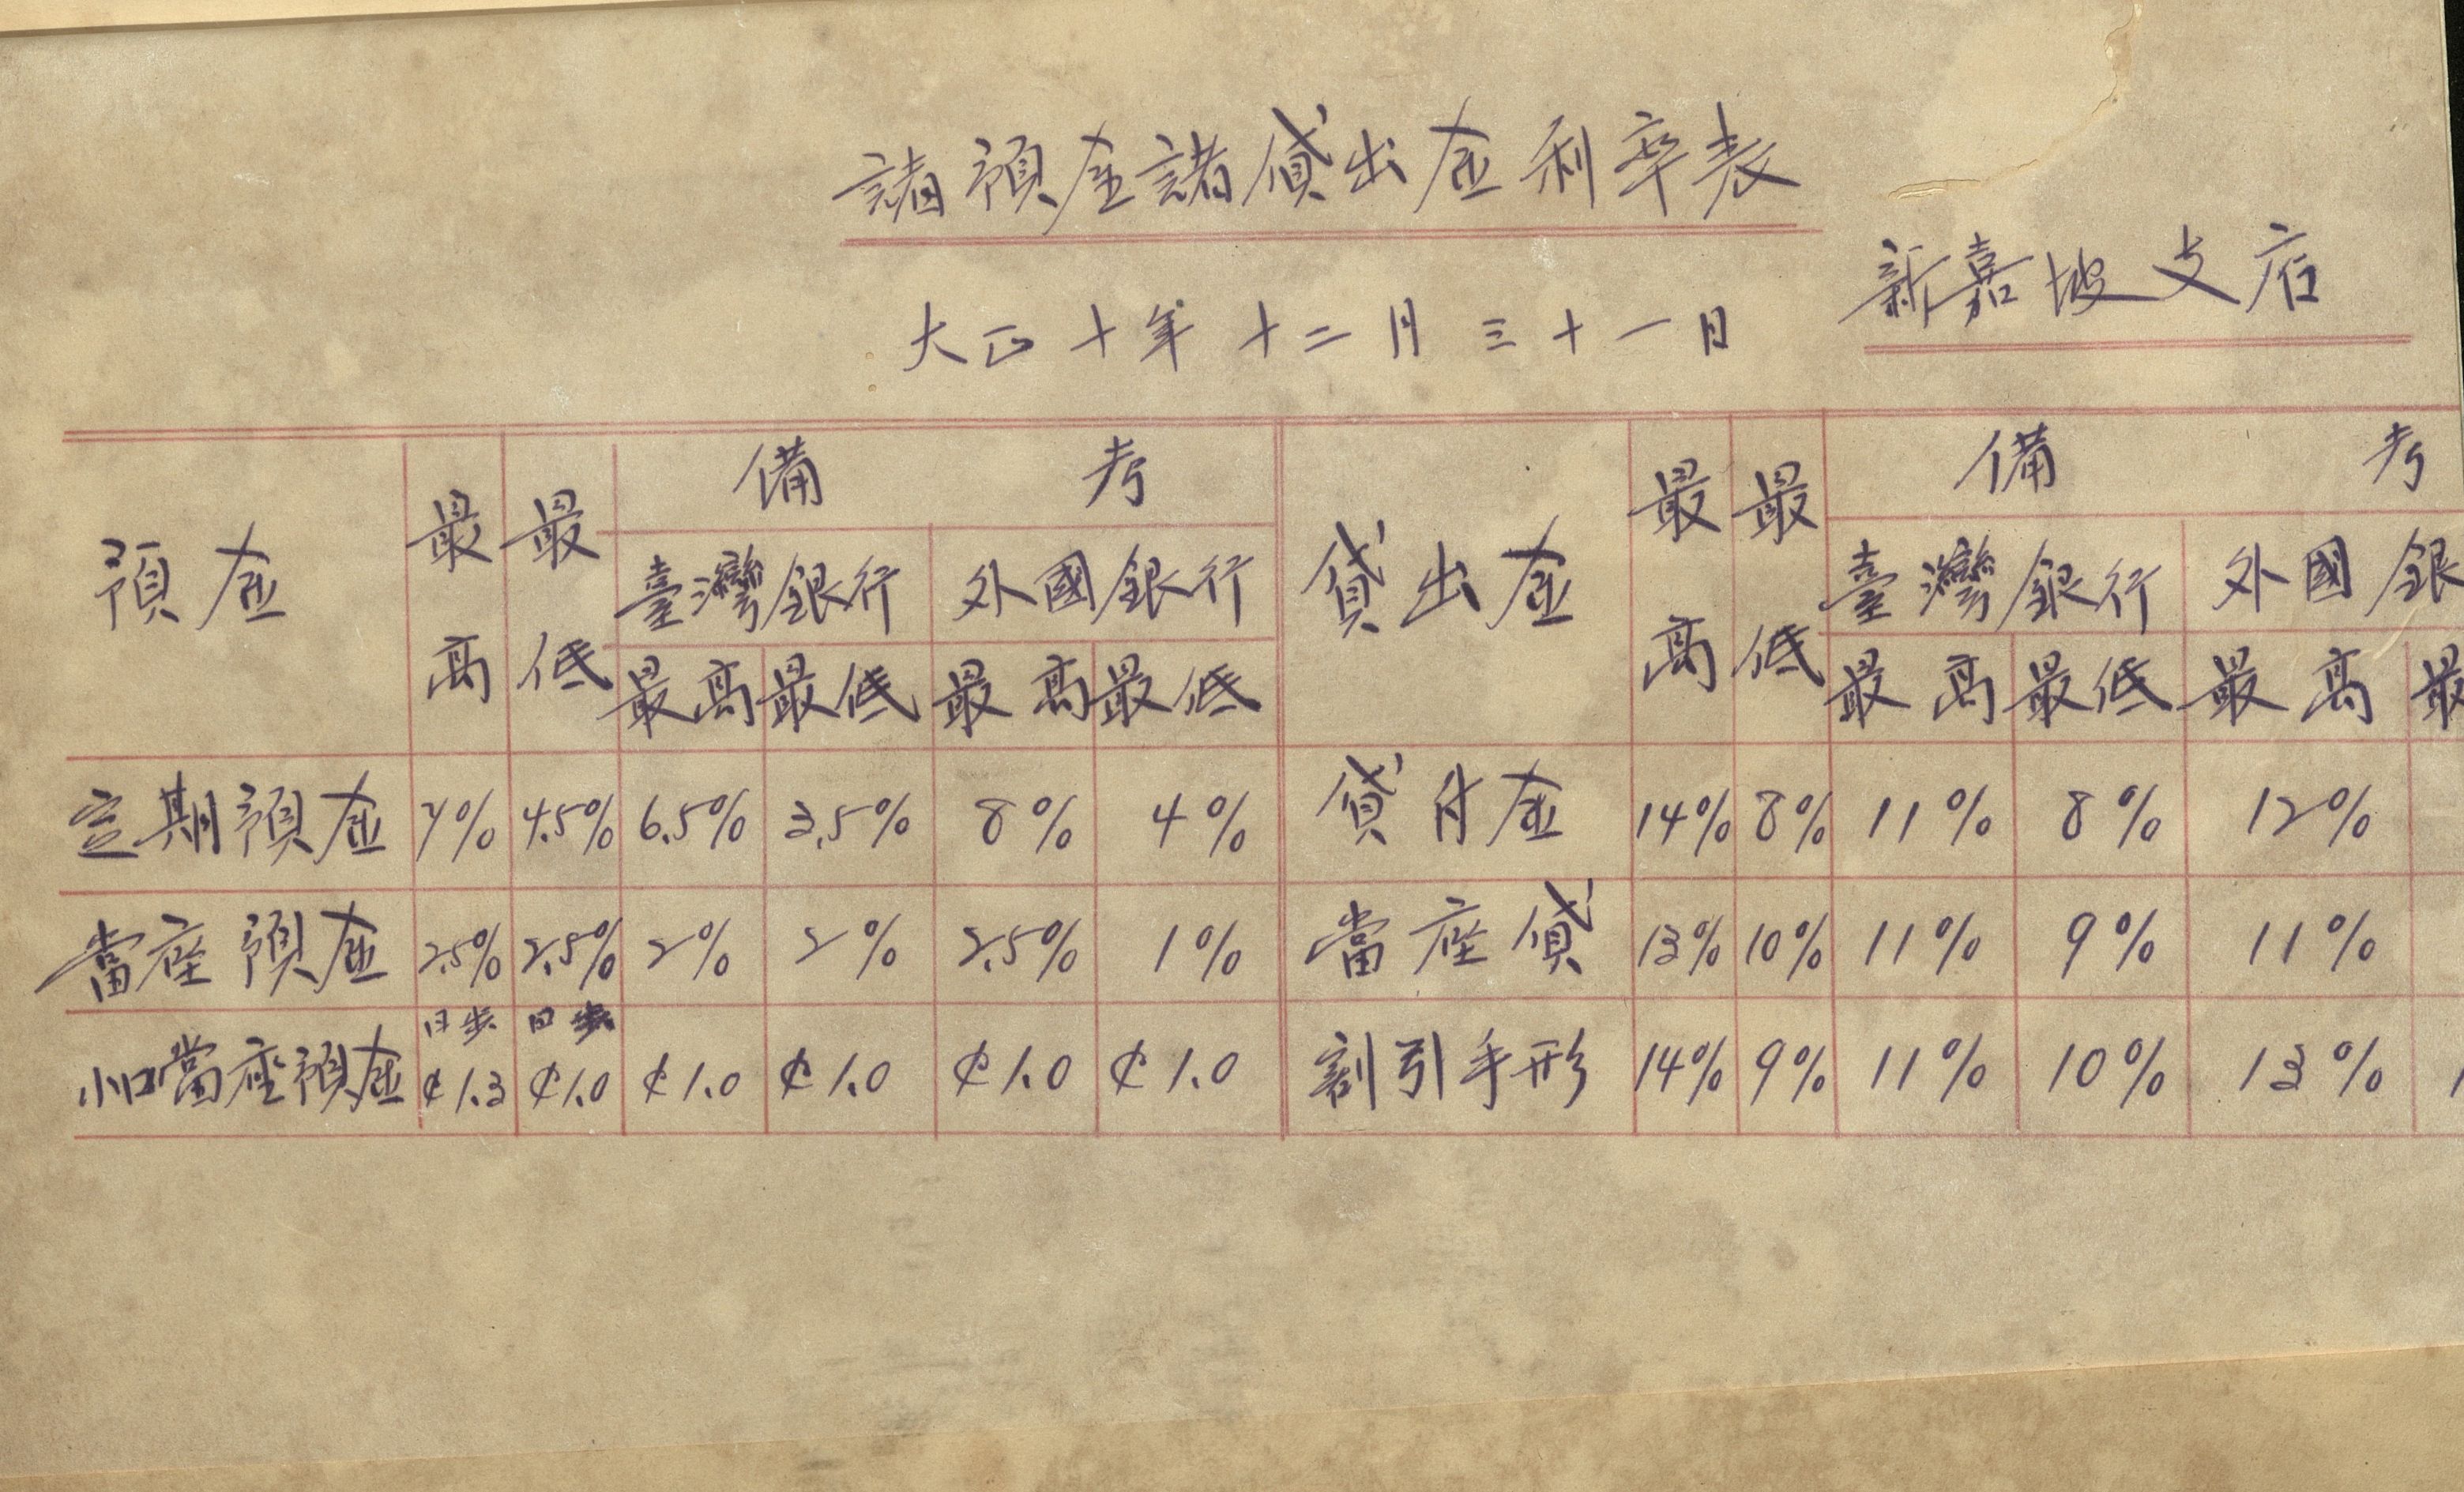 諸預金諸貸出金利率表
新嘉坡支店
大正十年十二月三十一日
預金 最高 最低 備考 貸出金 最高 最低 備考
臺灣銀行 外國銀行 臺灣銀行 外國銀
最高 最低 最高 最低 最高 最低 最高 最
定期預金 7% 4.5% 6.5% 3.5% 8% 4% 貸付金 14% 8% 11% 8% 12%
當座預金 2.5% 2.5% 2% 2% 2.5% 1% 當座貸 13% 10% 11% 9% 11%
日歩 日歩
小口當座預金 ¢1.3 ¢1.0 ¢1.0 ¢1.0 ¢1.0 ¢1.0 割引手形 14% 9% 11% 10% 13%